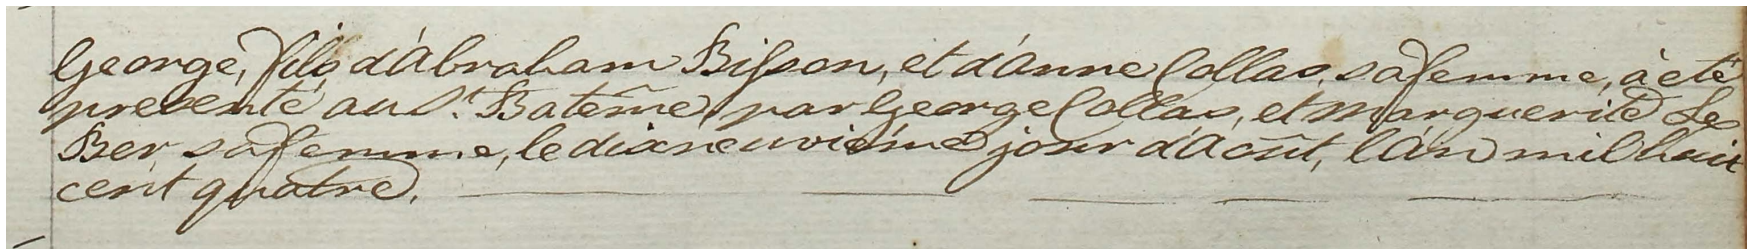 George, fils d'Abraham Bisson, et d'Anne Collas, sa femme, à eté
presenté au St. Batême par George Collas, et Marguerite Le
Ber, sa femme, le dixneuvième jour d'Aoüt, l'An mil huit
cent quatre.